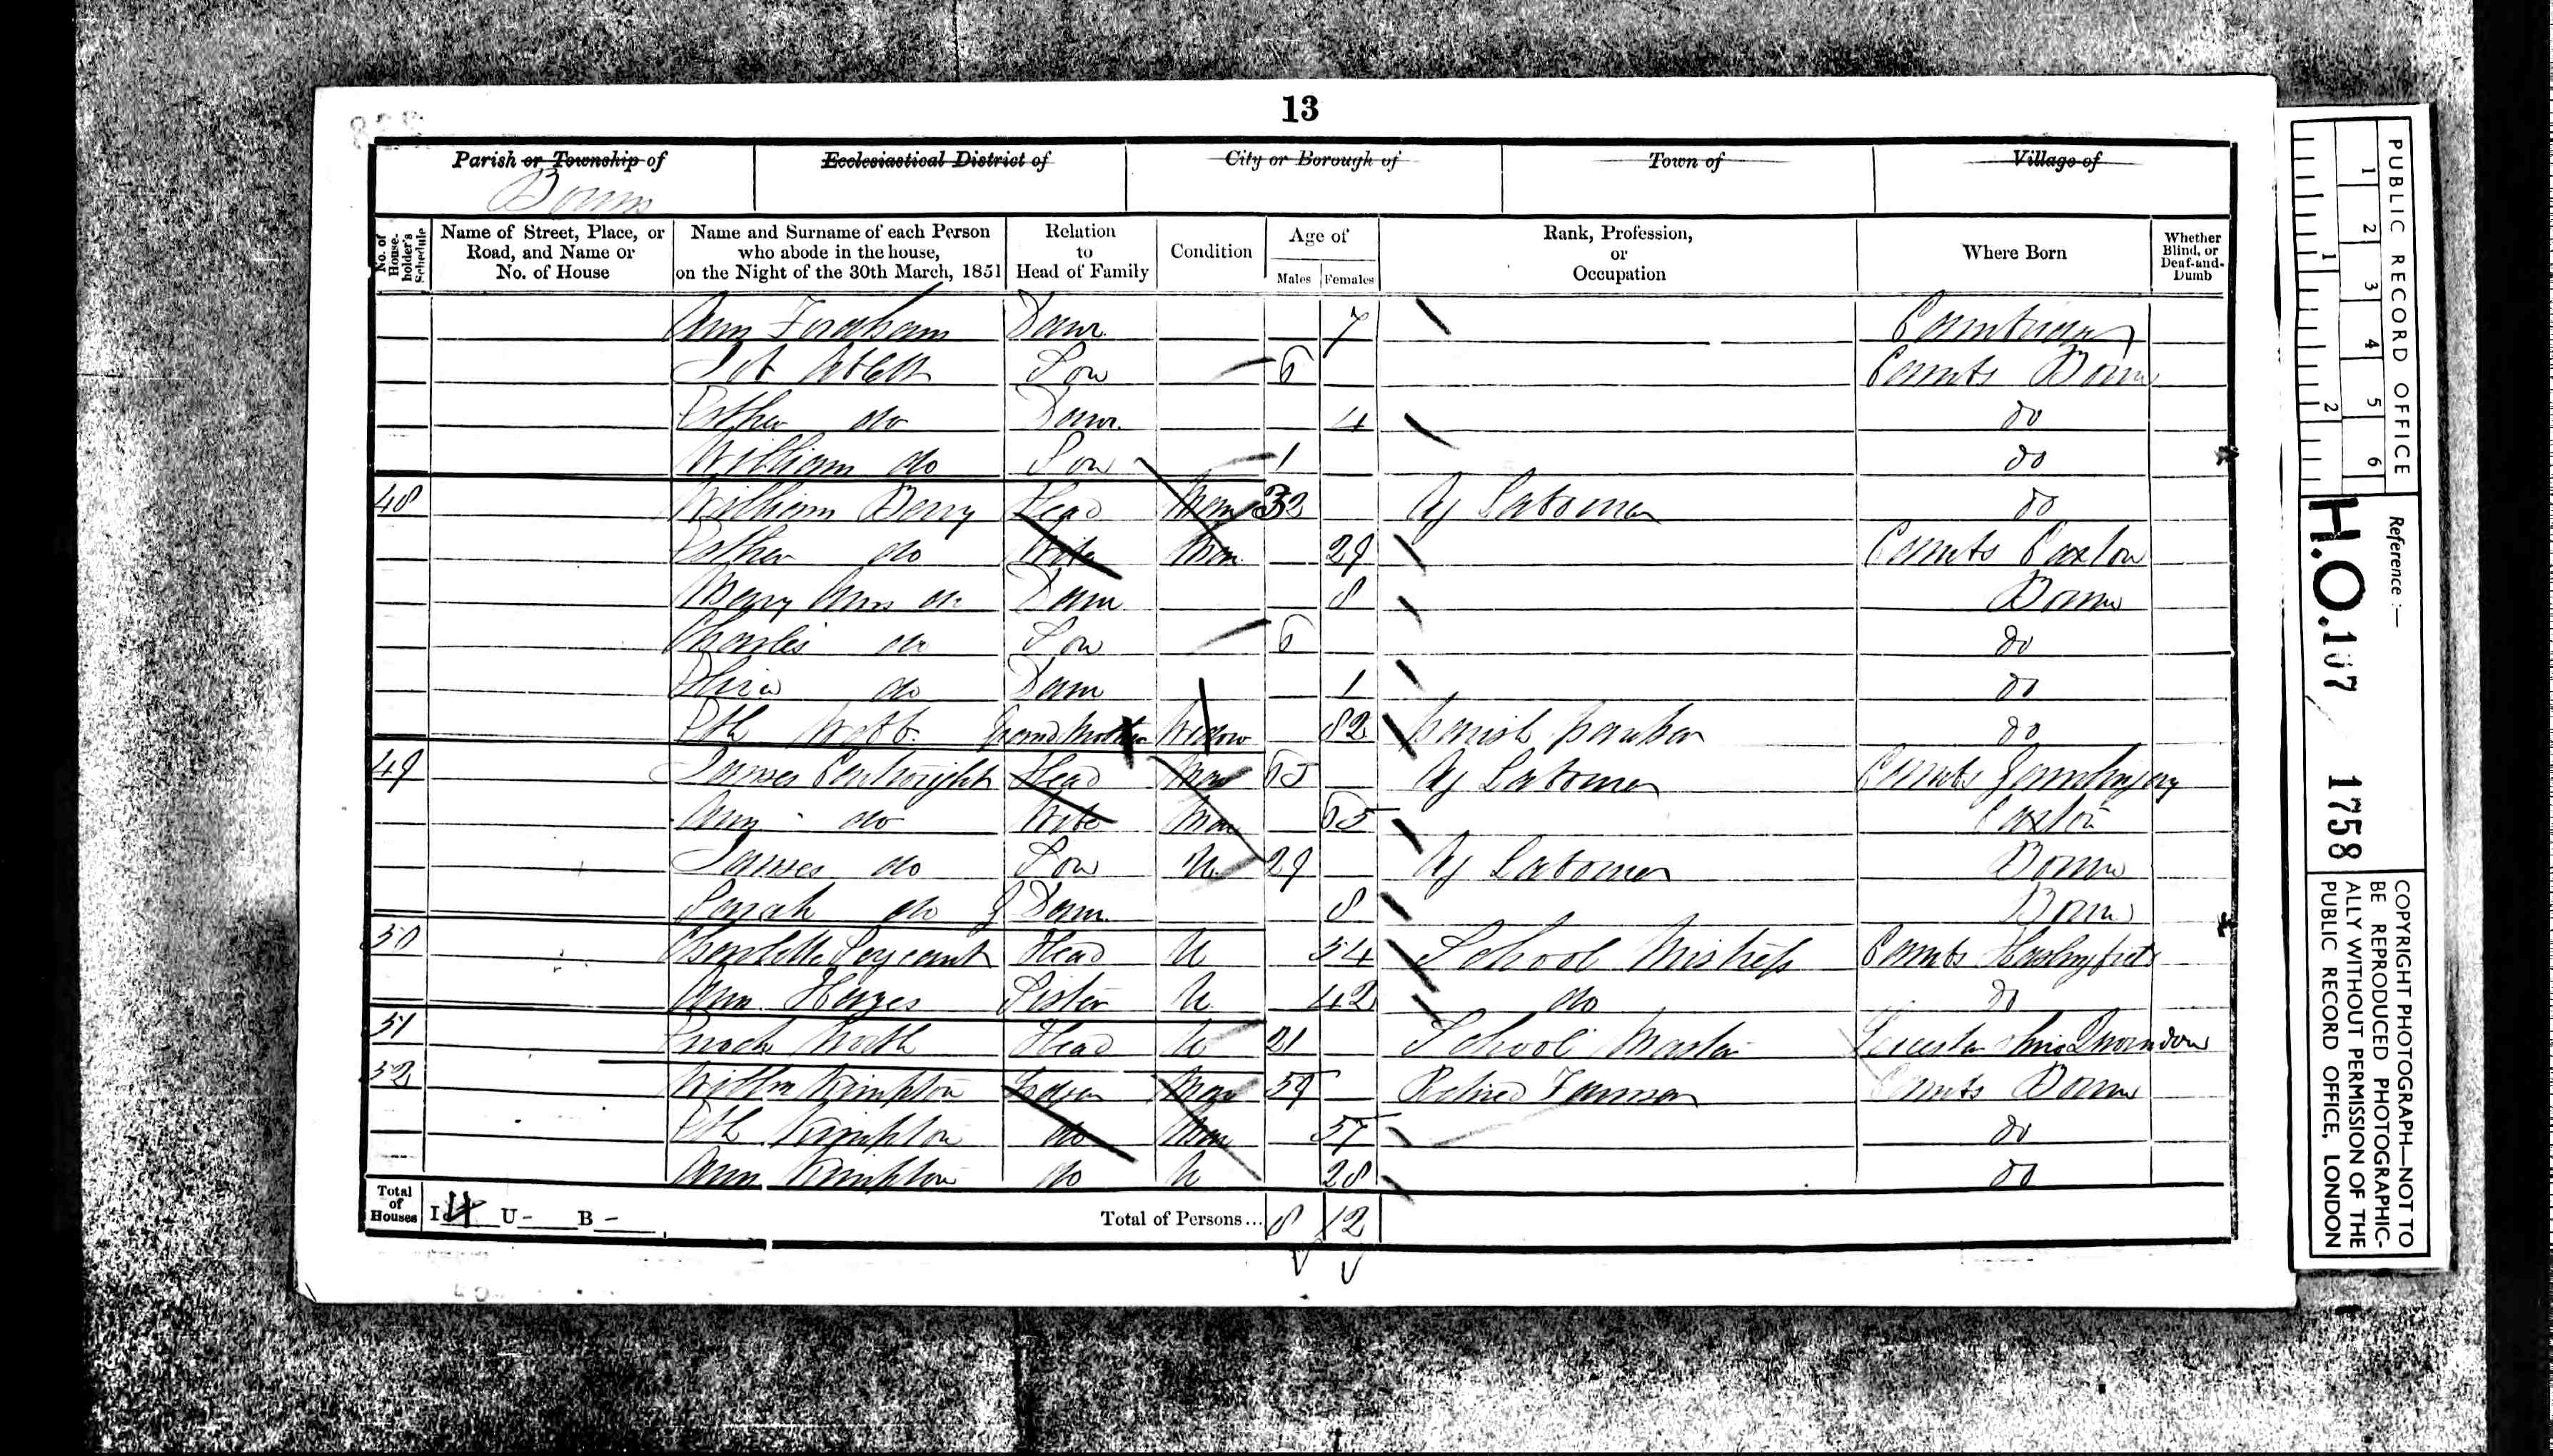 13
Parish or Township of Ecclesiastical District of City or Borough of Town of Village of
Bourn
No. of House-holder's Schedule Name of Street, Place, or Road, and Name or No. of House Name and Surname of each Person who abode in the house, on the Night of the 30th March, 1851 Relation to Head of Family Condition Age of Males Females Rank, Profession, or Occupation Where Born Whether Blind, or Deaf-and-Dumb
Ann Fordham Daur. 7
Son 6 Cambs Bourn
Esther do Daur. 4 do
William do Son 1 do
48 William Berry Head Mar 32 Ag Labourer do
Esther do Wife Mar 29 Cambs Caxton
Mary Ann do Daur 8 Bourn
Charles do Son 6 do
Eliza do Daur 1 do
Eth Webb Grand Mother Widow 82 Parish pauper do
49 James Cartwright Head Mar 65 Ag Labourer Cambs Gamlingay
Ann do Wife Mar 65 Caxton
James do Son U 29 Ag Labourer Bourn
Sarah do G Daur. 8 Bourn
50 Charlotte Sergeant Head U 54 School Mistress Cambs Haslingfield
Ann Sister U 42 do do
51 Enoch North Head U 21 School Master Leicester shire
52 Willm Kimpton Lodger Mar 59 Retired Farmer Cambs Bourn
Eth Kimpton do Mar 57 do
Ann Kimpton do U 28 do
Total of Houses I 4 U - B - Total of Persons... 8 12
PUBLIC RECORD OFFICE
1 2 3 4 5 6
1 2
Reference :—
H.O.107 1758
COPYRIGHT PHOTOGRAPH—NOT TO
BE REPRODUCED PHOTOGRAPHIC-
ALLY WITHOUT PERMISSION OF THE
PUBLIC RECORD OFFICE, LONDON